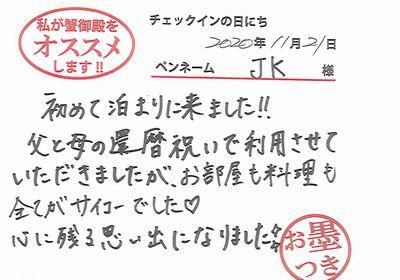 私が蟹御殿を
オススメ
します!!
チェックインの日にち
2020年11月21日
ペンネーム JK 様
初めて泊まりに来ました!!
父と母の還暦祝いで利用させて
いただきましたが、お部屋も料理も
全てがサイコーでした♡
心に残る思い出になりました☆☆
お墨
つき